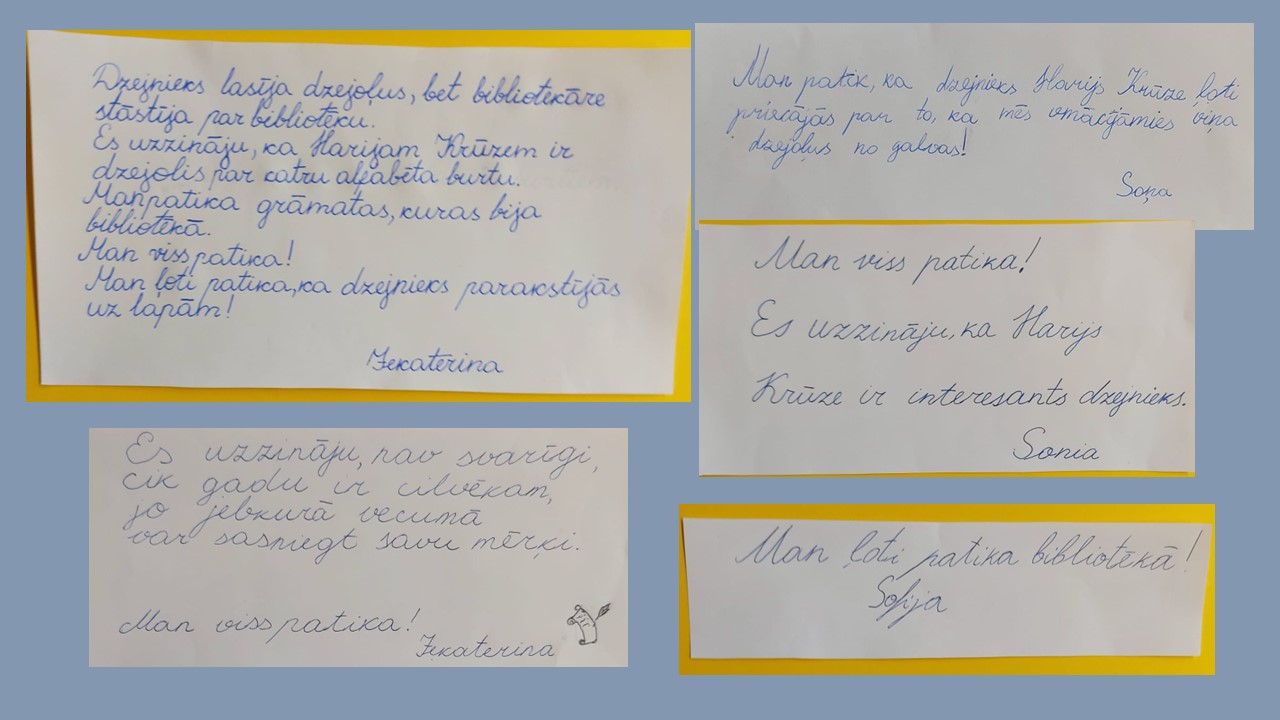 Dzejnieks lasīja dzejoļus, bet bibliotekāre
stāstīja par bibliotēku.
Es uzzināju, ka Harijam Krūzem ir
dzejolis par katru alfabēta burtu.
Man patika grāmatas, kuras bija
bibliotēkā.
Man viss patika!
Man ļoti patika, ka dzejnieks parakstījās
uz lapām!
Jekaterina
Man patīk, ka dzejnieks Harijs Krūze ļoti
priecājās par to, ka mēs iemācījāmies viņa
dzejoļus no galvas!
Soņa
Man viss patika!
Es uzzināju, ka Harijs
Krūze ir interesants dzejnieks.
Sonia
Es uzzināju, nav svarīgi,
cik gadu ir cilvēkam,
jo jebkurā vecumā
var sasniegt savu mērķi.
Man viss patika!
Jekaterina
Man ļoti patika bibliotēkā!
Sofija